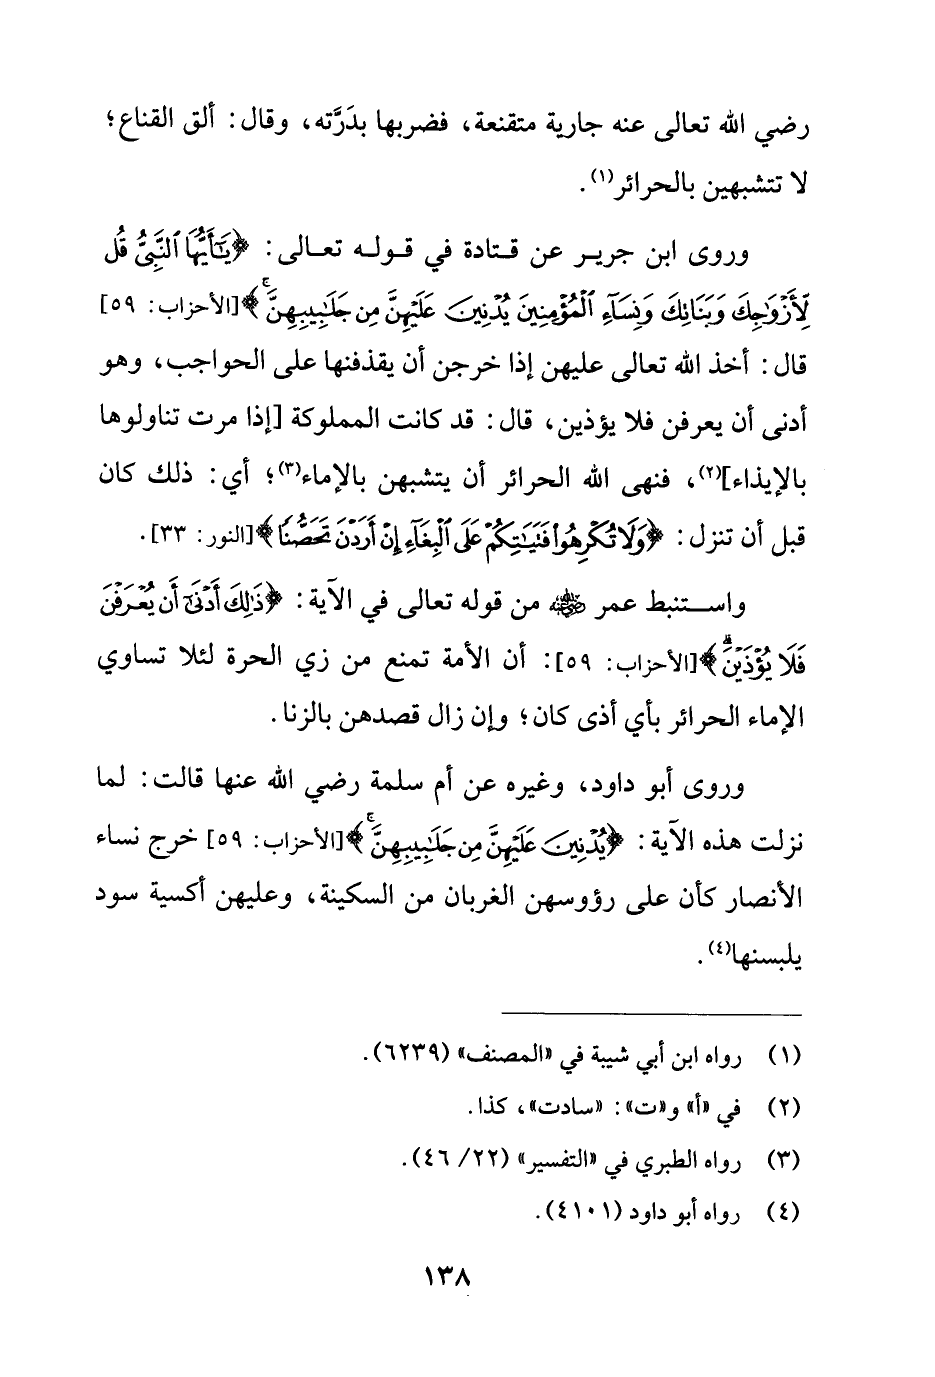 رضي الله تعالى عنه جارية متقنعة، فضربها بدَرَّته، وقال: ألق القناع؛
لا تتشبهين بالحرائر(١).
وروى ابن جرير عن قتادة في قوله تعالى: ﴿يَٰٓأَيُّهَا ٱلنَّبِيُّ قُل
لِّأَزْوَٰجِكَ وَبَنَاتِكَ وَنِسَآءِ ٱلْمُؤْمِنِينَ يُدْنِينَ عَلَيْهِنَّ مِن جَلَٰبِيبِهِنَّۚ﴾[الأحزاب: ٥٩]
قال: أخذ الله تعالى عليهن إذا خرجن أن يقذفنها على الحواجب، وهو
أدنى أن يعرفن فلا يؤذين، قال: قد كانت المملوكة [إذا مرت تناولوها
بالإيذاء](٢)، فنهى الله الحرائر أن يتشبهن بالإماء(٣)؛ أي: ذلك كان
قبل أن تنزل: ﴿وَلَا تُكْرِهُوا۟ فَتَيَٰتِكُمْ عَلَى ٱلْبِغَآءِ إِنْ أَرَدْنَ تَحَصُّنًا﴾[النور: ٣٣].
واستنبط عمر رضي الله عنه من قوله تعالى في الآية: ﴿ذَٰلِكَ أَدْنَىٰٓ أَن يُعْرَفْنَ
فَلَا يُؤْذَيْنَۗ﴾[الأحزاب: ٥٩]: أن الأمة تمنع من زي الحرة لئلا تساوي
الإماء الحرائر بأي أذى كان؛ وإن زال قصدهن بالزنا.
وروى أبو داود، وغيره عن أم سلمة رضي الله عنها قالت: لما
نزلت هذه الآية: ﴿يُدْنِينَ عَلَيْهِنَّ مِن جَلَٰبِيبِهِنَّۚ﴾[الأحزاب: ٥٩] خرج نساء
الأنصار كأن على رؤوسهن الغربان من السكينة، وعليهن أكسية سود
يلبسنها(٤).
(١) رواه ابن أبي شيبة في «المصنف» (٦٢٣٩).
(٢) في «أ» و«ت»: «سادت»، كذا.
(٣) رواه الطبري في «التفسير» (٢٢/ ٤٦).
(٤) رواه أبو داود (٤١٠١).
١٣٨